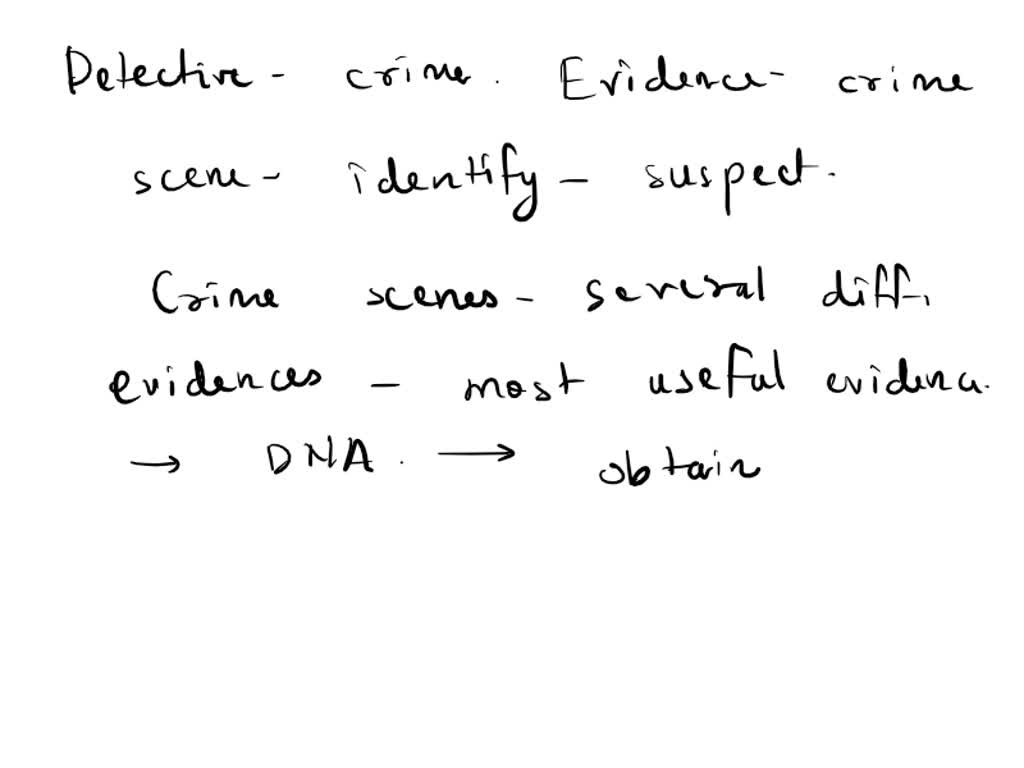 Detective - crime. Evidence - crime
scene - identify - suspect.
Crime scenes - several diff.
evidences - most useful evidence.
→ DNA. → obtain